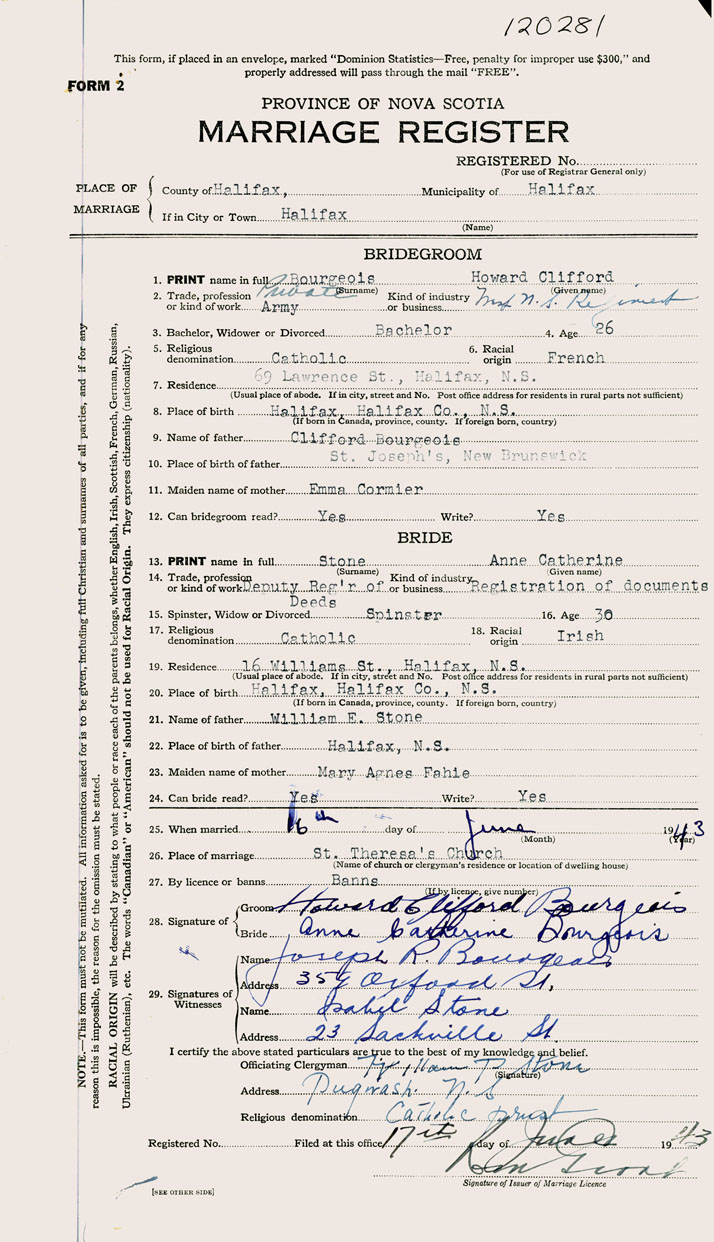 120281
This form, if placed in an envelope, marked "Dominion Statistics—Free, penalty for improper use $300," and
properly addressed will pass through the mail "FREE".
FORM 2
PROVINCE OF NOVA SCOTIA
MARRIAGE REGISTER
REGISTERED No.
(For use of Registrar General only)
PLACE OF MARRIAGE
County of Halifax, Municipality of Halifax
If in City or Town Halifax
(Name)
BRIDEGROOM
1. PRINT name in full Bourgeois Howard Clifford
(Surname) (Given name)
2. Trade, profession or kind of work Private Army Kind of industry or business N.S. Regiment
3. Bachelor, Widower or Divorced Bachelor 4. Age 26
5. Religious denomination Catholic 6. Racial origin French
7. Residence 69 Lawrence St., Halifax, N.S.
(Usual place of abode. If in city, street and No. Post office address for residents in rural parts not sufficient)
8. Place of birth Halifax, Halifax Co., N.S.
(If born in Canada, province, county. If foreign born, country)
9. Name of father Clifford Bourgeois
10. Place of birth of father St. Joseph's, New Brunswick
11. Maiden name of mother Emma Cormier
12. Can bridegroom read? Yes Write? Yes
BRIDE
13. PRINT name in full Stone Anne Catherine
(Surname) (Given name)
14. Trade, profession or kind of work Deputy Reg'r of Deeds Kind of industry or business Registration of documents
15. Spinster, Widow or Divorced Spinster 16. Age 30
17. Religious denomination Catholic 18. Racial origin Irish
19. Residence 16 Williams St., Halifax, N.S.
(Usual place of abode. If in city, street and No. Post office address for residents in rural parts not sufficient)
20. Place of birth Halifax, Halifax Co., N.S.
(If born in Canada, province, county. If foreign born, country)
21. Name of father William E. Stone
22. Place of birth of father Halifax, N.S.
23. Maiden name of mother Mary Agnes Fahie
24. Can bride read? Yes Write? Yes
25. When married 16th day of June 1943
(Month) (Year)
26. Place of marriage St. Theresa's Church
(Name of church or clergyman's residence or location of dwelling house)
27. By licence or banns Banns
(If by licence, give number)
28. Signature of
Groom Howard Clifford Bourgeois
Bride Anne Catherine Bourgeois
29. Signatures of Witnesses
Name Joseph R. Bourgeois
Address 359 Oxford St,
Name Isabel Stone
Address 23 Sackville St.
I certify the above stated particulars are true to the best of my knowledge and belief.
Officiating Clergyman Stone
(Signature)
Address Pugwash N.S
Religious denomination Catholic priest
Registered No. Filed at this office 17th day of June 1943
Signature of Issuer of Marriage Licence
[SEE OTHER SIDE]
NOTE.—This form must not be mutilated. All information asked for is to be given, including full Christian and surnames of all parties, and if for any
reason this is impossible, the reason for the omission must be stated.
RACIAL ORIGIN will be described by stating to what people or race each of the parents belongs, whether English, Irish, Scottish, French, German, Russian,
Ukrainian (Ruthenian), etc. The words "Canadian" or "American" should not be used for Racial Origin. They express citizenship (nationality).